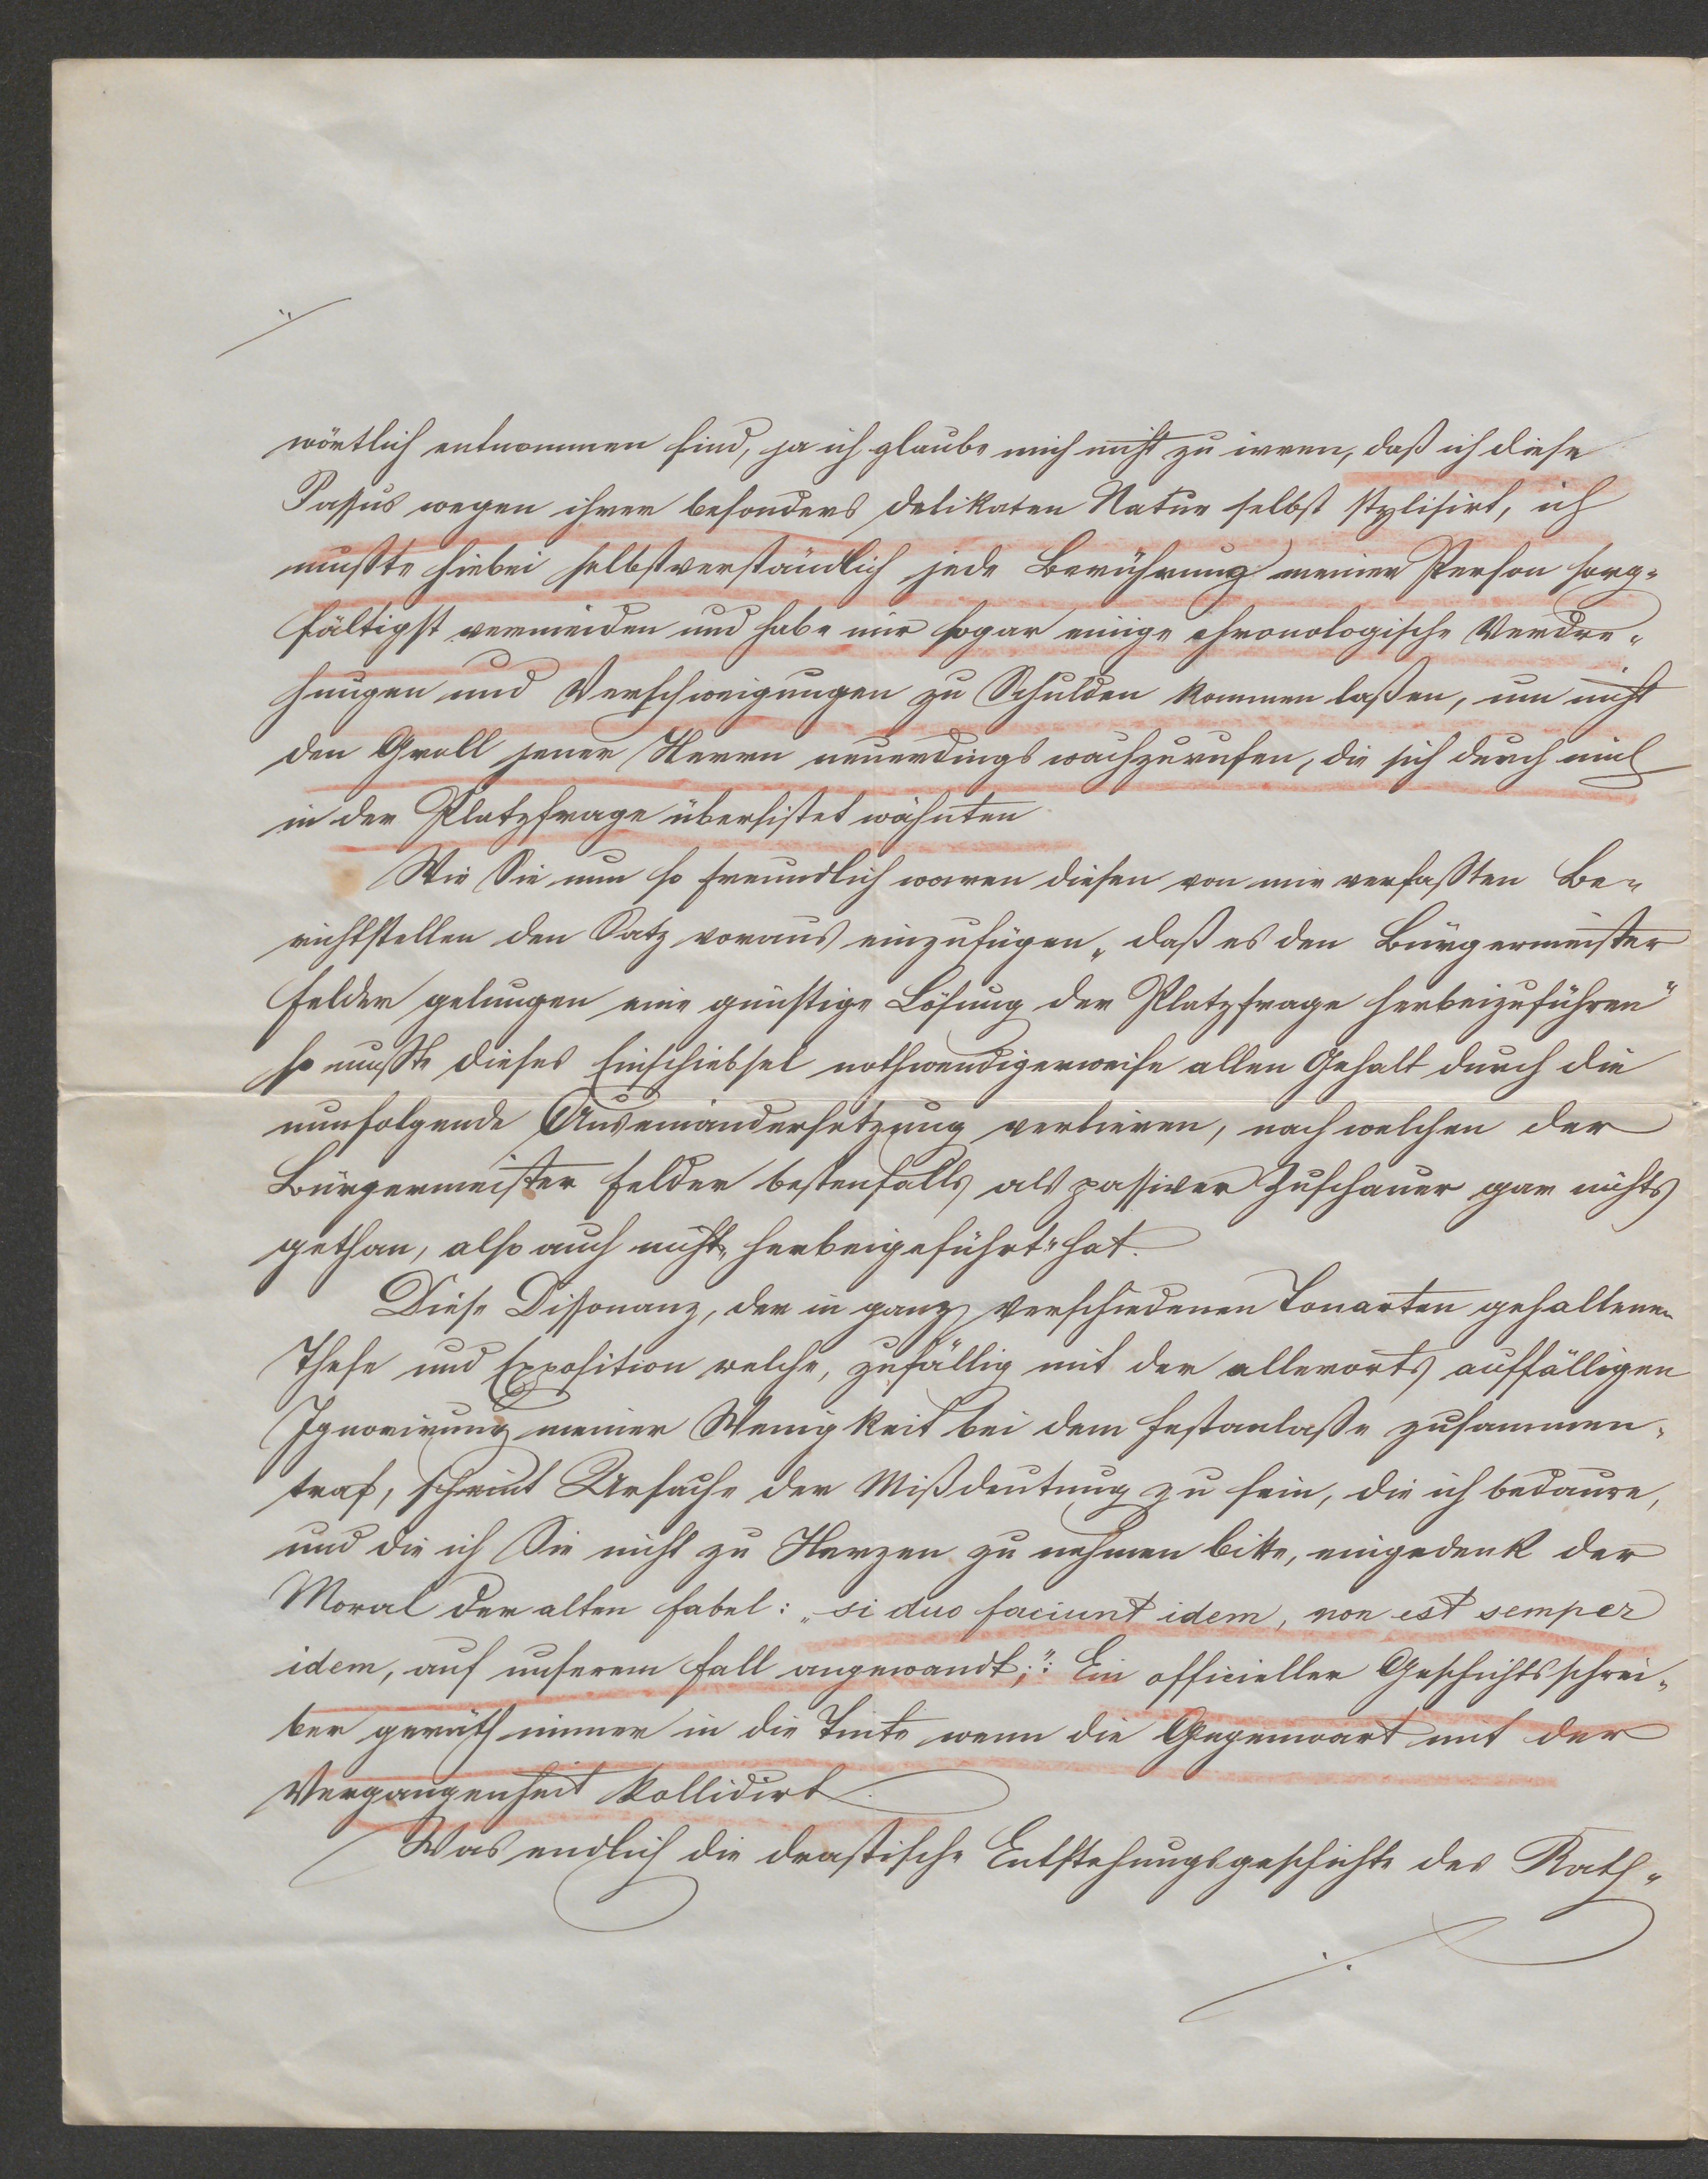 wörtlich entnommen sind, ja ich glaube mich nicht zu irren, daß ich diese
Passus wegen ihrer besonders delikaten Natur selbst stylisirt, ich
mußte hiebei selbstverständlich jede Berührung meiner Person sorg-
fältigst vermeiden und habe mir sogar einige chronologische Verdre-
hungen und Verschweigungen zu Schulden kommen laßen, um nicht
den Groll jener Herrn neuerdings wachzurufen, die sich durch mich
in der Platzfrage überlistet wähnten
Wie Sie nun so freundlich waren diesen von mir verfaßten Be-
richtstellen den Satz voraus einzufügen „daß es den Bürgermeister
Felder gelungen eine günstige Lösung der Platzfrage herbeizuführen"
so mußte dieses Einschiebsel nothwendigerweise allen Gehalt durch die
nunfolgende Auseinandersetzung verlieren, nach welchen der
Bürgermeister Felder bestenfalls als passiver Zuschauer gar nichts
gethan, also auch nicht „herbeigeführt" hat.
Diese Dissonanz, der in ganz verschiedenen Tonarten gehaltenen
These und Exposition welche, zufällig mit der allerorts auffälligen
Ignorirung meiner Wenigkeit bei dem Festanlaße zusammen-
traf, scheint Ursache der Mißdeutung zu sein, die ich bedaure,
und die ich Sie nicht zu Herzen zu nehmen bitte, eingedenk der
Moral der alten Fabel: „si duo faciunt idem, non est semper
idem, auf unserem Fall angewandt;": Ein officieller Geschichtsschrei-
ber geräth immer in die Tinte wenn die Gegenwart mit der
Vergangenheit kollidirt.
Was endlich die drastische Entstehungsgeschichte des Rath-